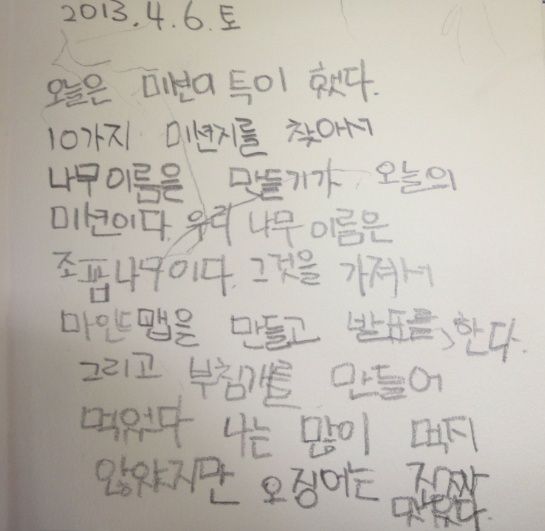 2013.4.6.토
오늘은 미션이 특이 했다.
10가지 미션지를 찾아서
나무이름은 만들기가 오늘의
미션이다. 우리 나무 이름은
조팝나무이다. 그것을 가져서
마인드맵을 만들고 발표를, 한다.
그리고 부침개를 만들어
먹었다 나는 많이 먹지
않았지만 오징어는 진짜
맛있다.